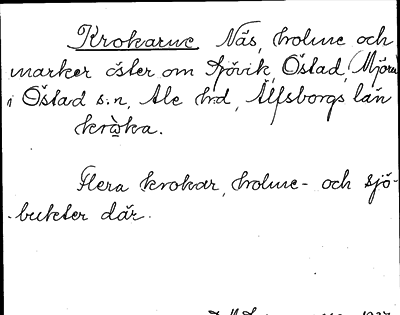 Krokarne Näs, holme och
marker öster om Sjövik, Östad, (Mjörn
i Östad s:n, Ale h:d, Älfsborgs län
kròka.
Flera krokar, holme- och sjö-
bukter där.